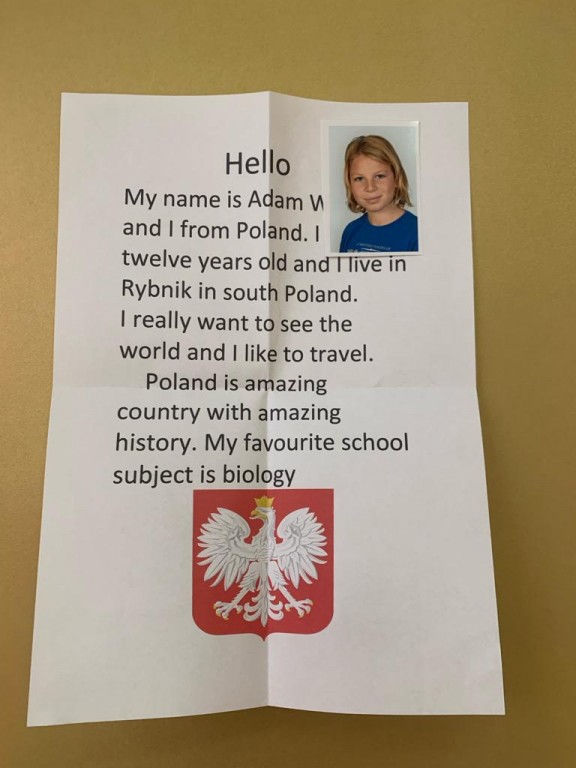 Hello
My name is Adam W
and I from Poland. I
twelve years old and I live in
Rybnik in south Poland.
I really want to see the
world and I like to travel.
Poland is amazing
country with amazing
history. My favourite school
subject is biology